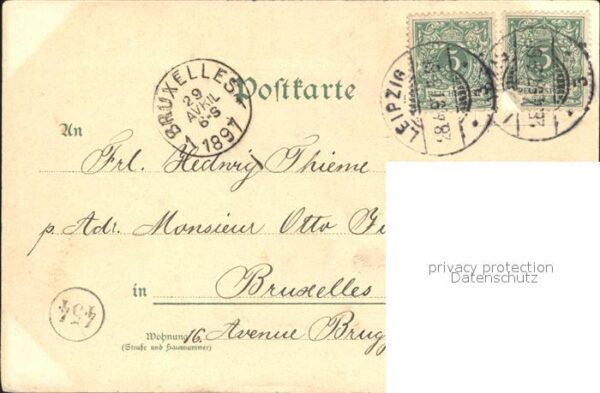 Postkarte
BRUXELLES
29
AVRIL
6-S
1897
LEIPZIG
5
5
An
Frl. Hedwig Thieme
p. Adr. Monsieur Otto
in Bruxelles
Wohnung 16. Avenue Brug
(Straße und Hausnummer)
454
privacy protection
Datenschutz